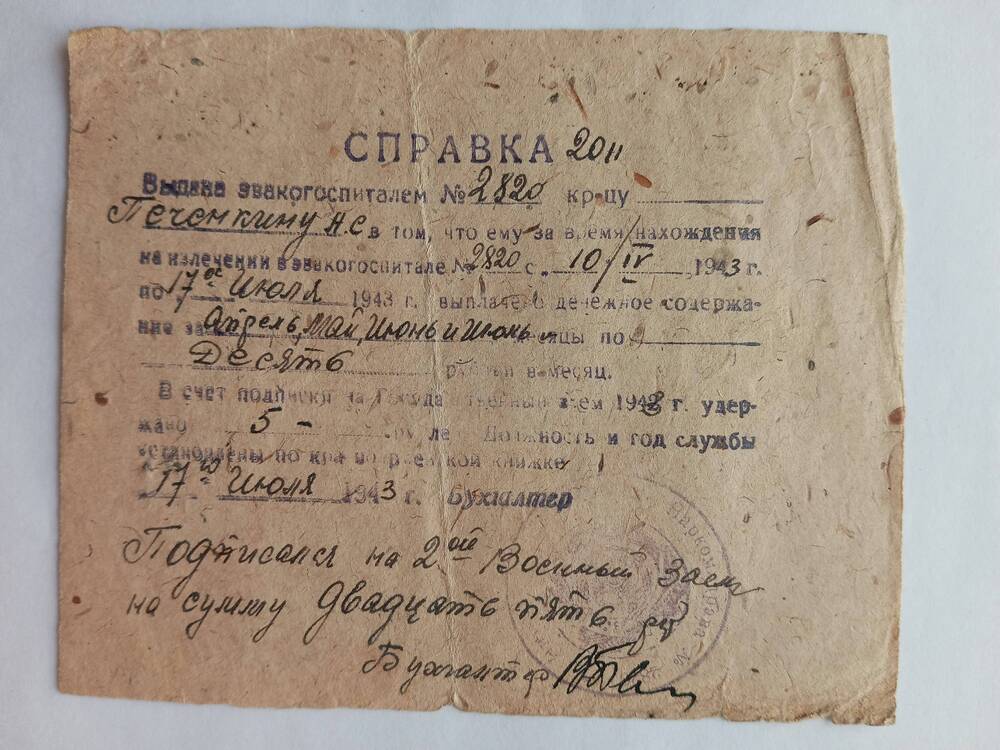 СПРАВКА 2011
Выдана эвакогоспиталем № 2820 кр-цу
Печенкину Н.С в том, что ему за время нахождения
на излечении в эвакогоспитале № 2820 с „ 10/IV 1943 г.
по 17ое Июля 1943 г. выплачено денежное содержа-
ние за Апрель, Май, Июнь и Июль месяцы по
Десять рублей в месяц.
В счет подписки на Государственный заем 1943 г. удер-
жано 5 - рубле Должность и год службы
установлены по красноармейской книжке
17го Июля 1943 г. Бухгалтер
Подписался на 2ой Военный Заем
на сумму двадцать пять руб
Бухгалтер